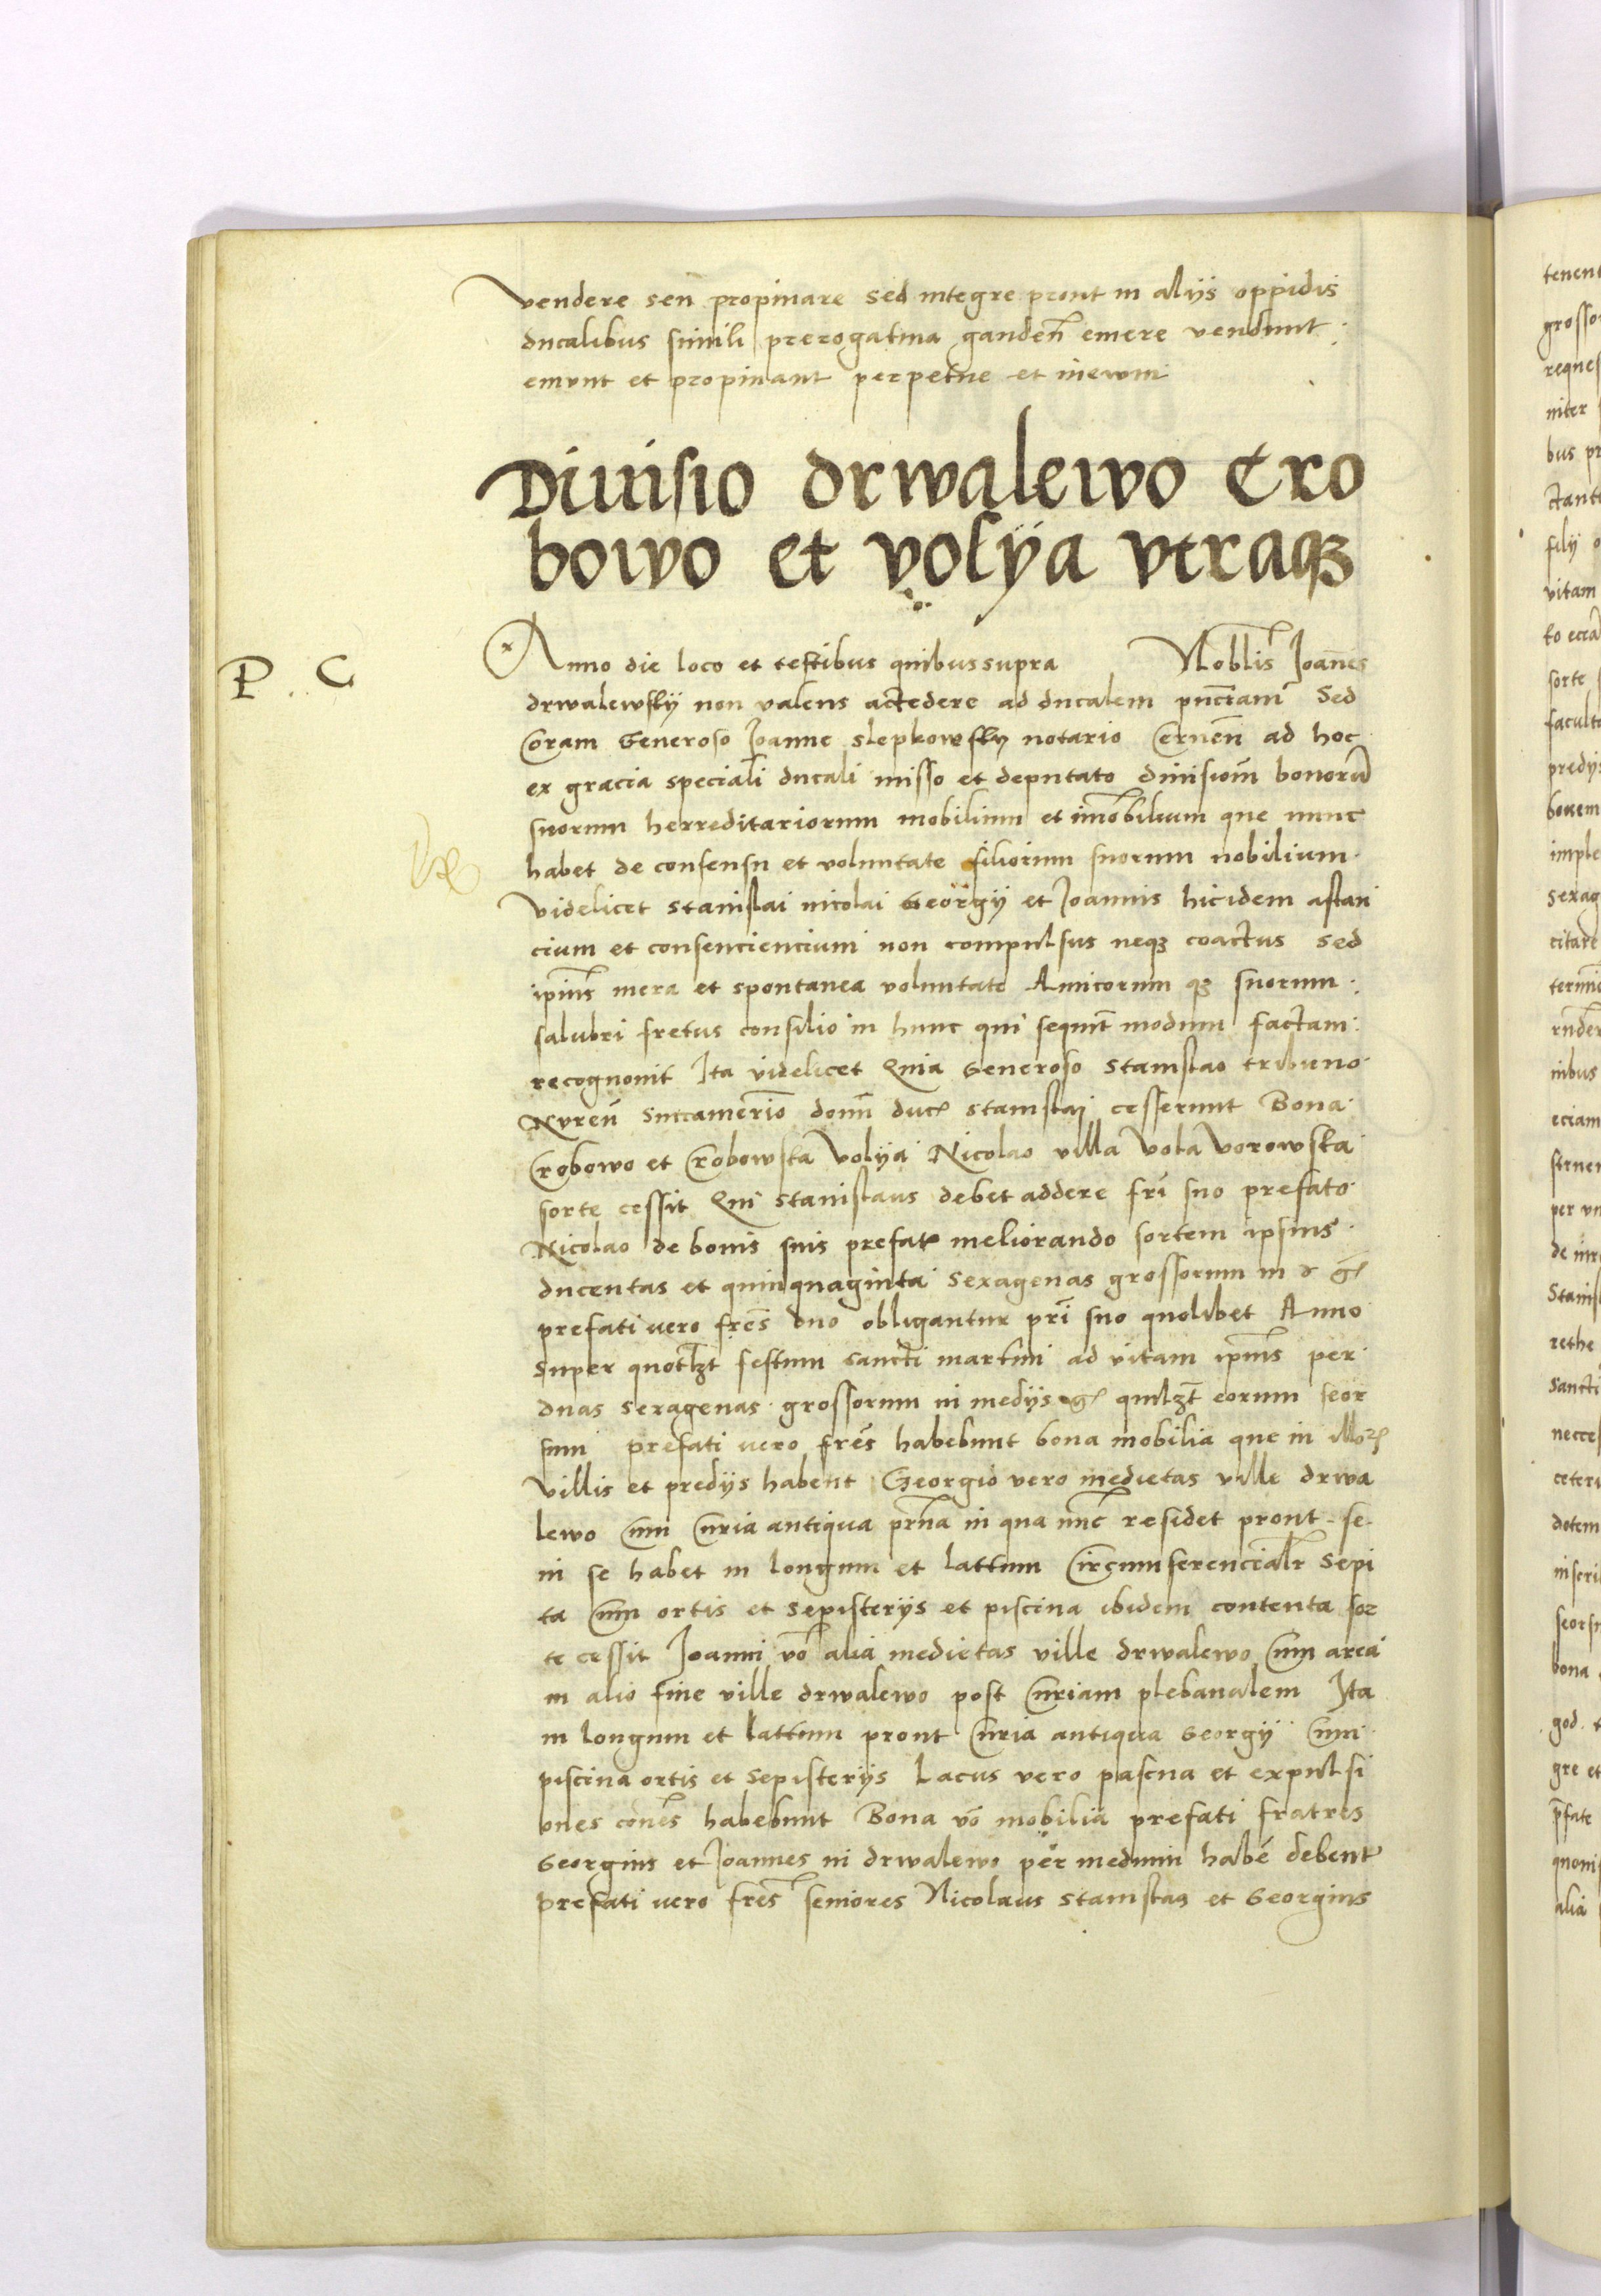 vendere seu propinare sed integre prout in alys oppidis
ducalibus simili prerogatiua gauden̄ emere vendunt
emunt et propinant perpetue et ineuum
Diuisio drwalewo Cro
bowo et volya vtraqꝫ
P. C
Anno die loco et testibus quibus supra Noblis Joan̄es
drwalewsky non valens actedere ad ducalem pn̄ctiam Sed
Coram Generoso Joanne slepkowsky notario Cernen̄ ad hoc
ex gracia speciali ducali misso et deputato diuisiom̄ bonorū
suorum herreditariorum mobilium et im̄obilium que nunc
habet de consensu et voluntate filiorum suorum nobilium
videlicet stanislai nicolai Georgy et Joannis hicidem astan
cium et consenciencium non compulsus neqꝫ coactus sed
ip̄ius mera et spontanea voluntate Amicorum qꝫ suorum
salubri fretus consilio in hunc qui sequit̄ modum factam
recognouit Ita videlicet Quia Generoso stanislao tribuno
Nuren̄ succamerio dom̄ duc stanislai cesserunt Bona
Crobowo et Crobowska volya Nicolao villa vola vorowska
sorte cessit Qui stanislaus debet addere fr̄i suo prefato
Nicolao de bonis suis prefat meliorando sortem ipsius
ducentas et quinquaginta sexagenas grossorum in r g
prefati vero fr̄es duo obligantur pr̄i suo quolibet Anno
super quotlꝫt festum sancti martini ad vitam ip̄ius per
duas sexagenas grossorum in medys g quilꝫt eorum seor
sum prefati vero fr̄es habebunt bona mobilia que in illoꝝ
villis et predys habent Georgio vero medietas ville drwa
lewo cum curia antiqua pr̄na in qua nūc residet prout se
in se habet in longum et lattum circumferencialr sepi
ta cum ortis et sepisterys et piscina ibidem contenta sor
te cessit Joanni vo alia medietas ville drwalewo cum area
in alio fine ville drwalewo post curiam plebanalem Ita
in longum et lattum prout curia antiqua Georgy cum
piscina ortis et sepisterys Lacus vero pascua et expulsi
ones cōnes habebunt Bona vo mobilia prefati fratres
Georgius et Joannes in drwalewo per medium habe debent
prefati vero fr̄es seniores Nicolaus stanislaꝰ et Georgius